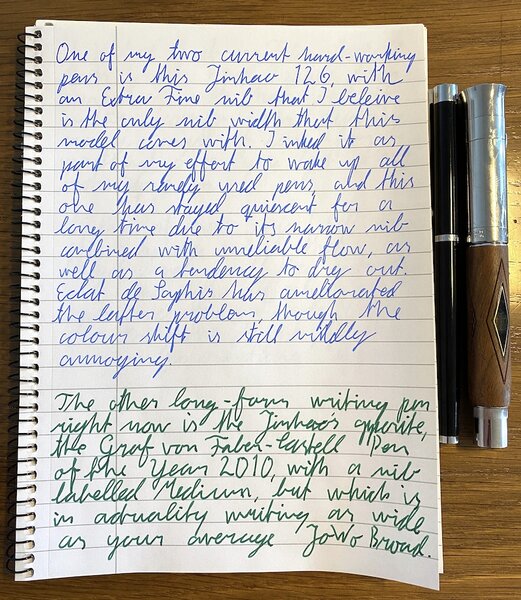 One of my two current hard-working
pens is this Jinhao 126, with
an Extra Fine nib that I beleive
is the only nib width that this
model comes with. I inked it as
part of my effort to wake up all
of my rarely used pens, and this
one has stayed quiescent for a
long time due to its narrow nib
combined with unreliable flow, as
well as a tendency to dry out.
Eclat de Saphir has ameliorated
the latter problem, though the
colour shift is still mildly
annoying.
The other long-form writing pen
right now is the Jinhao's opposite,
the Graf von Faber-Castell Pen
of the Year 2010, with a nib
labelled Medium, but which is
in actuality writing as wide
as your average JoWo Broad.